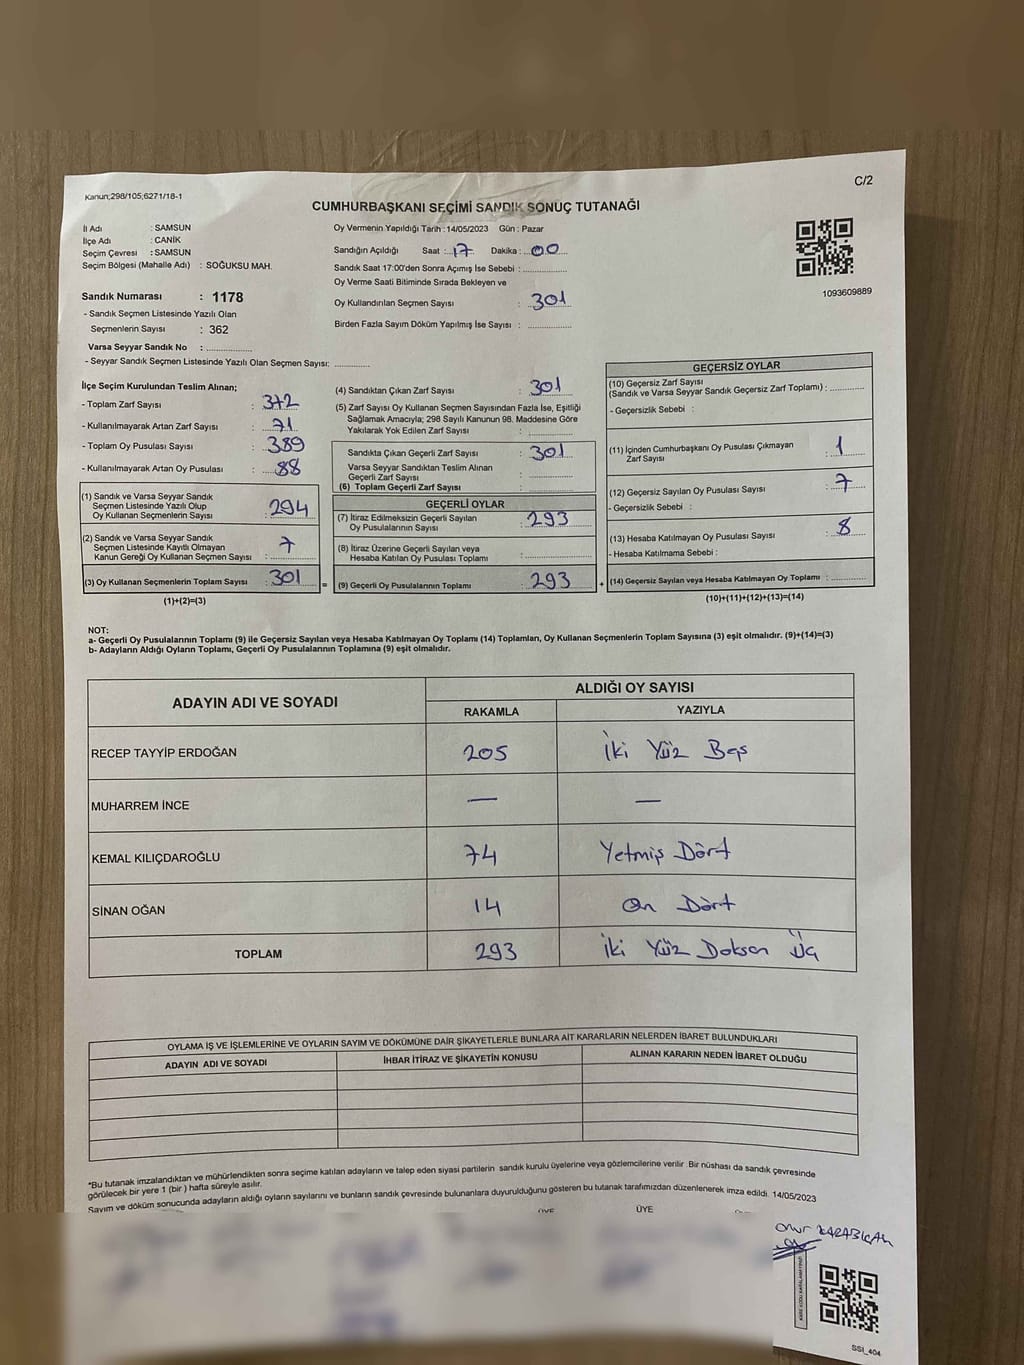 Kanun;298/105;6271/18-1
C/2
CUMHURBAŞKANI SEÇİMİ SANDIK SONUÇ TUTANAĞI
İl Adı : SAMSUN
İlçe Adı : CANİK
Seçim Çevresi : SAMSUN
Seçim Bölgesi (Mahalle Adı) : SOĞUKSU MAH.
Sandık Numarası : 1178
- Sandık Seçmen Listesinde Yazılı Olan
Seçmenlerin Sayısı : 362
Varsa Seyyar Sandık No :
- Seyyar Sandık Seçmen Listesinde Yazılı Olan Seçmen Sayısı:
Oy Vermenin Yapıldığı Tarih : 14/05/2023 Gün : Pazar
Sandığın Açıldığı Saat : 17 Dakika : 00
Sandık Saat 17:00'den Sonra Açımış İse Sebebi :
Oy Verme Saati Bitiminde Sırada Bekleyen ve
Oy Kullandırılan Seçmen Sayısı : 301
Birden Fazla Sayım Döküm Yapılmış İse Sayısı :
1093609889
İlçe Seçim Kurulundan Teslim Alınan;
- Toplam Zarf Sayısı : 372
- Kullanılmayarak Artan Zarf Sayısı : 71
- Toplam Oy Pusulası Sayısı : 389
- Kullanılmayarak Artan Oy Pusulası : 88
(1) Sandık ve Varsa Seyyar Sandık
Seçmen Listesinde Yazılı Olup
Oy Kullanan Seçmenlerin Sayısı : 294
(2) Sandık ve Varsa Seyyar Sandık
Seçmen Listesinde Kayıtlı Olmayan
Kanun Gereği Oy Kullanan Seçmen Sayısı : 7
(3) Oy Kullanan Seçmenlerin Toplam Sayısı : 301
(1)+(2)=(3)
(4) Sandıktan Çıkan Zarf Sayısı : 301
(5) Zarf Sayısı Oy Kullanan Seçmen Sayısından Fazla İse, Eşitliği
Sağlamak Amacıyla; 298 Sayılı Kanunun 98. Maddesine Göre
Yakılarak Yok Edilen Zarf Sayısı :
Sandıkta Çıkan Geçerli Zarf Sayısı : 301
Varsa Seyyar Sandıktan Teslim Alınan
Geçerli Zarf Sayısı :
(6) Toplam Geçerli Zarf Sayısı :
GEÇERLİ OYLAR
(7) İtiraz Edilmeksizin Geçerli Sayılan
Oy Pusulalarının Sayısı : 293
(8) İtiraz Üzerine Geçerli Sayılan veya
Hesaba Katılan Oy Pusulası Toplamı :
= (9) Geçerli Oy Pusulalarının Toplamı : 293 +
GEÇERSİZ OYLAR
(10) Geçersiz Zarf Sayısı
(Sandık ve Varsa Seyyar Sandık Geçersiz Zarf Toplamı) :
- Geçersizlik Sebebi :
(11) İçinden Cumhurbaşkanı Oy Pusulası Çıkmayan
Zarf Sayısı : 1
(12) Geçersiz Sayılan Oy Pusulası Sayısı : 7
- Geçersizlik Sebebi :
(13) Hesaba Katılmayan Oy Pusulası Sayısı : 8
- Hesaba Katılmama Sebebi :
(14) Geçersiz Sayılan veya Hesaba Katılmayan Oy Toplamı :
(10)+(11)+(12)+(13)=(14)
NOT:
a- Geçerli Oy Pusulalarının Toplamı (9) ile Geçersiz Sayılan veya Hesaba Katılmayan Oy Toplamı (14) Toplamları, Oy Kullanan Seçmenlerin Toplam Sayısına (3) eşit olmalıdır. (9)+(14)=(3)
b- Adayların Aldığı Oyların Toplamı, Geçerli Oy Pusulalarının Toplamına (9) eşit olmalıdır.
ADAYIN ADI VE SOYADI
ALDIĞI OY SAYISI
RAKAMLA YAZIYLA
RECEP TAYYİP ERDOĞAN 205 İki Yüz Beş
MUHARREM İNCE — —
KEMAL KILIÇDAROĞLU 74 Yetmiş Dört
SİNAN OĞAN 14 On Dört
TOPLAM 293 İki Yüz Doksan Üç
OYLAMA İŞ VE İŞLEMLERİNE VE OYLARIN SAYIM VE DÖKÜMÜNE DAİR ŞİKAYETLERLE BUNLARA AİT KARARLARIN NELERDEN İBARET BULUNDUKLARI
ADAYIN ADI VE SOYADI İHBAR İTİRAZ VE ŞİKAYETİN KONUSU ALINAN KARARIN NEDEN İBARET OLDUĞU
*Bu tutanak imzalandıktan ve mühürlendikten sonra seçime katılan adayların ve talep eden siyasi partilerin sandık kurulu üyelerine veya gözlemcilerine verilir. Bir nüshası da sandık çevresinde
görülecek bir yere 1 (bir ) hafta süreyle asılır.
Sayım ve döküm sonucunda adayların aldığı oyların sayılarını ve bunların sandık çevresinde bulunanlara duyurulduğunu gösteren bu tutanak tarafımızdan düzenlenerek imza edildi. 14/05/2023
ÜYE ÜYE
Onur KARABIÇAK
SSI_404